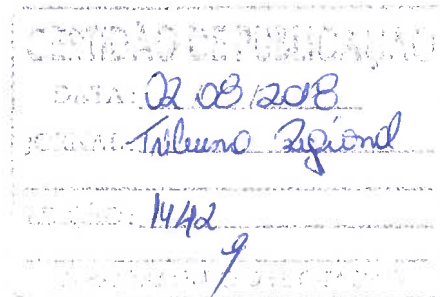 CERTIDÃO DE PUBLICAÇÃO
DATA: 02 08 2018
JORNAL: Tribuna Regional
1442